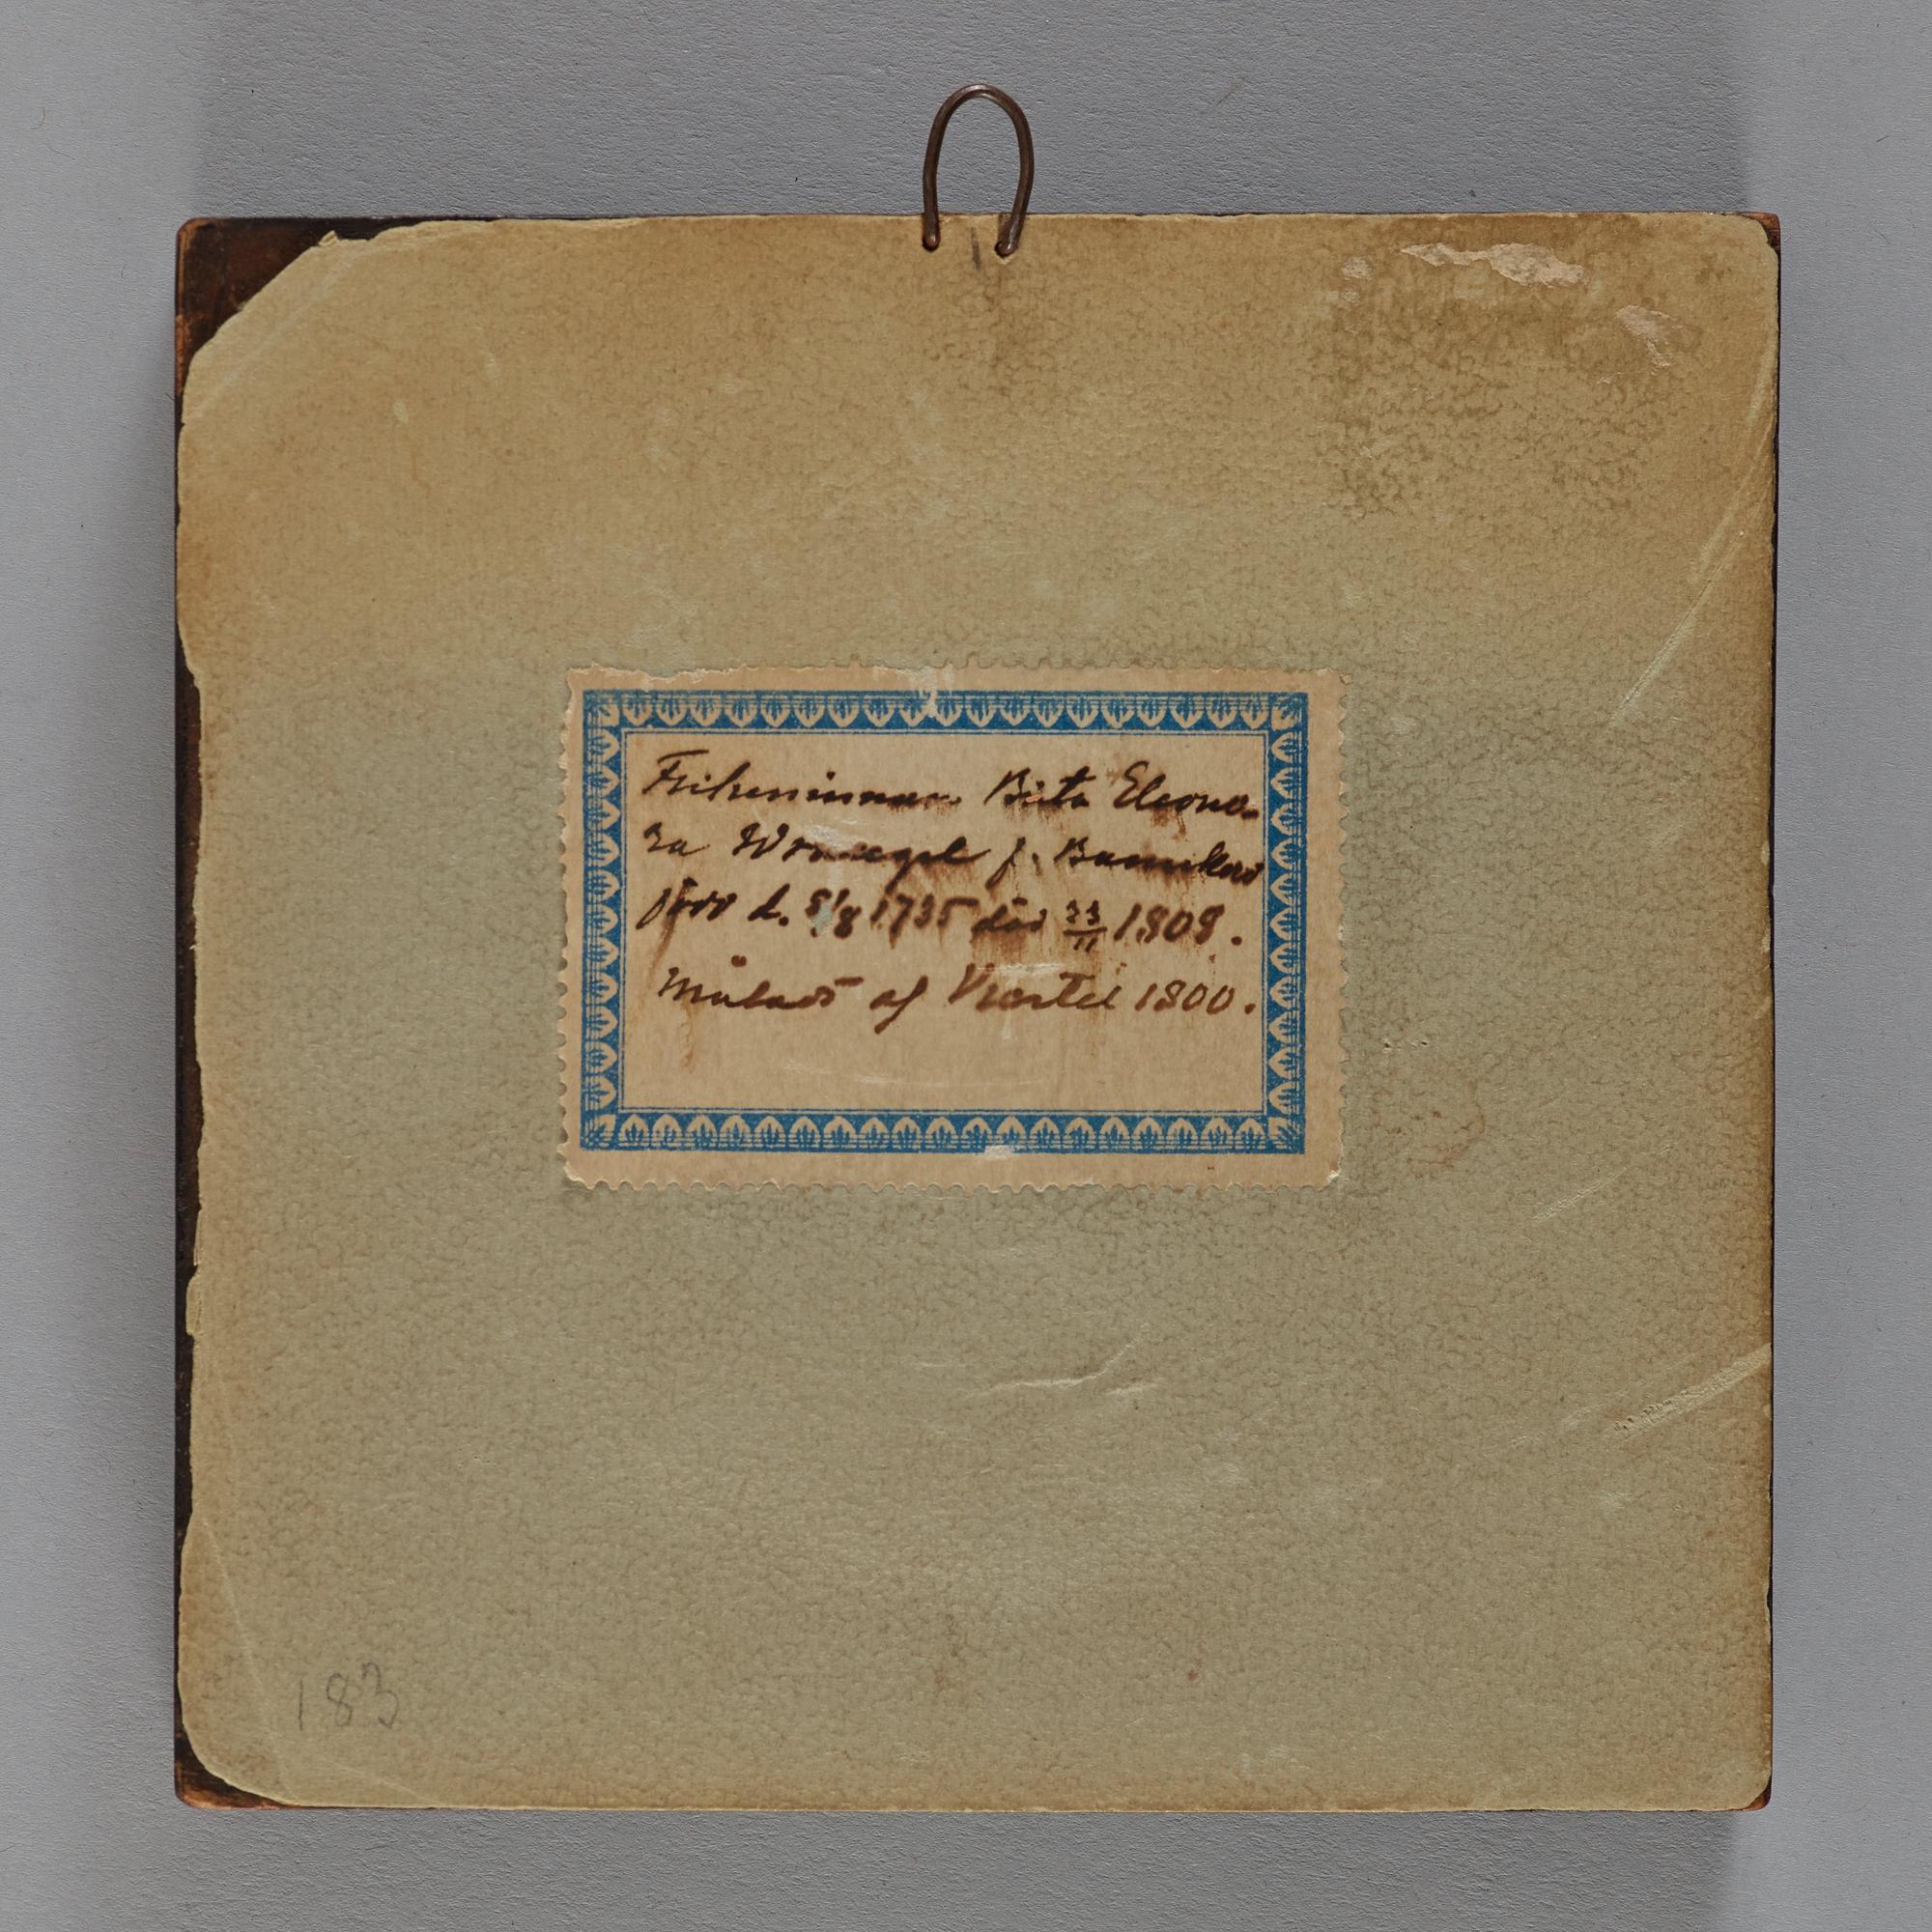 Friherrinnan Beata Eleono-
ra Wrangel f. Bunnekow
född d. 5/8 1735 död 23/11 1808.
Målad af Viertel 1800.
183